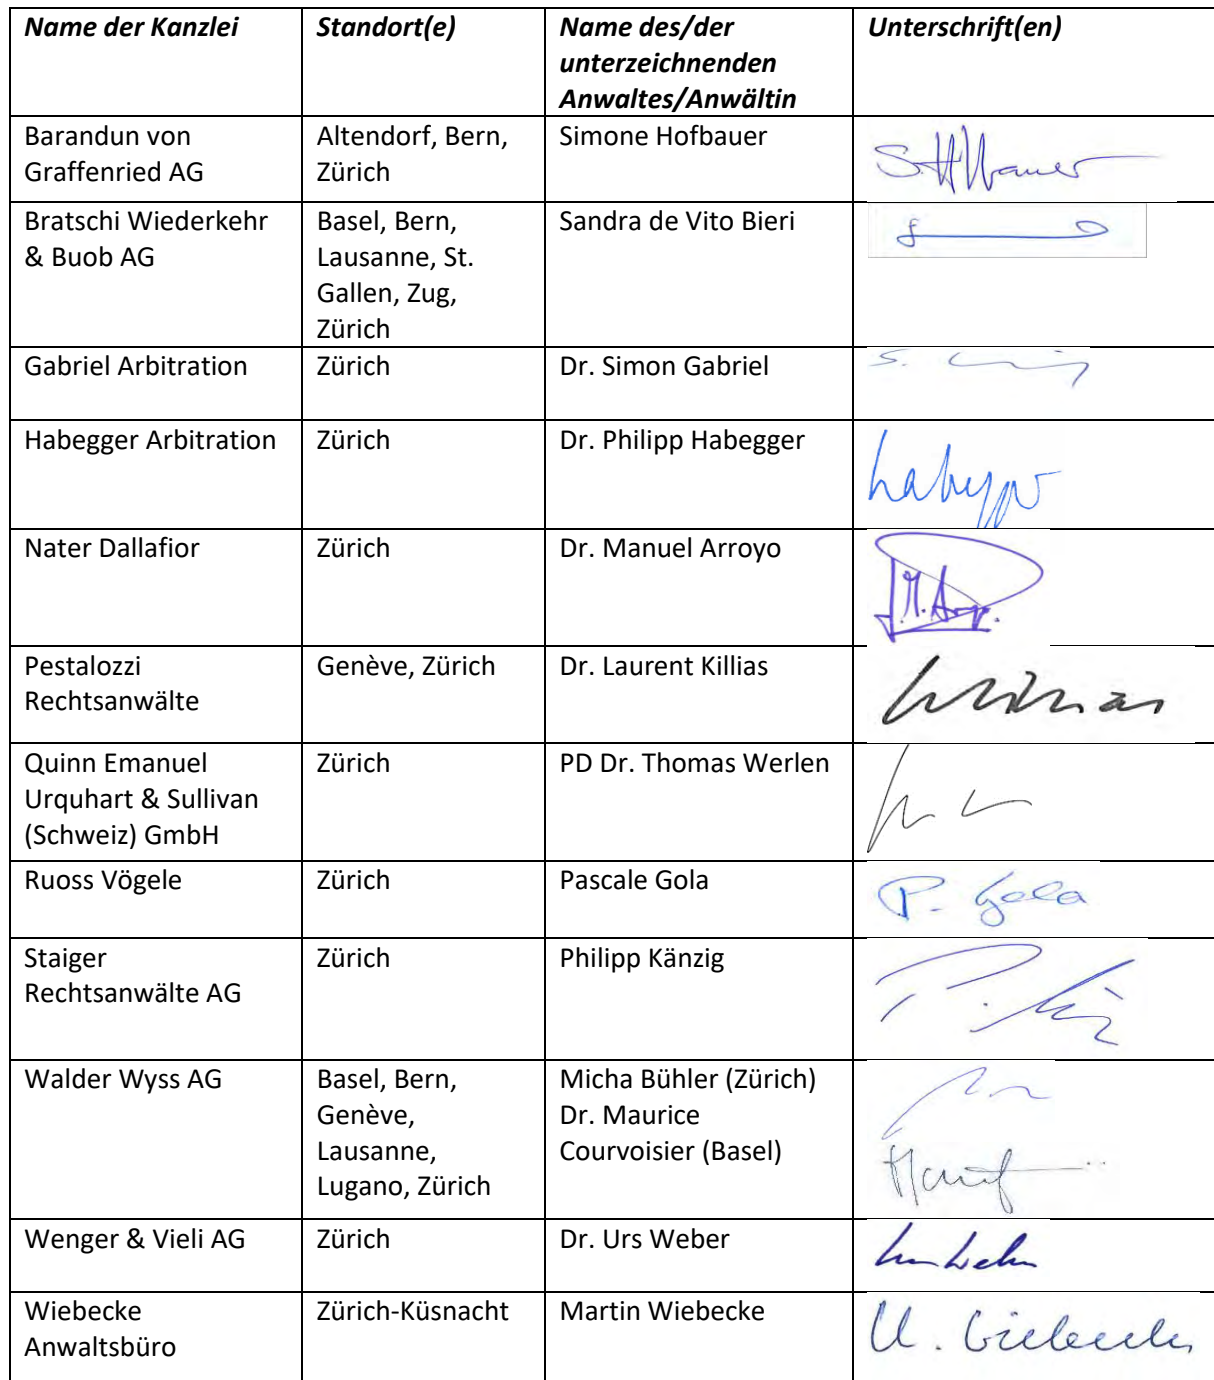 Name der Kanzlei
Standort(e)
Name des/der
unterzeichnenden
Anwaltes/Anwältin
Unterschrift(en)
Barandun von
Graffenried AG
Altendorf, Bern,
Zürich
Simone Hofbauer
Bratschi Wiederkehr
& Buob AG
Basel, Bern,
Lausanne, St.
Gallen, Zug,
Zürich
Sandra de Vito Bieri
Gabriel Arbitration
Zürich
Dr. Simon Gabriel
Habegger Arbitration
Zürich
Dr. Philipp Habegger
Nater Dallafior
Zürich
Dr. Manuel Arroyo
Pestalozzi
Rechtsanwälte
Genève, Zürich
Dr. Laurent Killias
Quinn Emanuel
Urquhart & Sullivan
(Schweiz) GmbH
Zürich
PD Dr. Thomas Werlen
Ruoss Vögele
Zürich
Pascale Gola
P. Gola
Staiger
Rechtsanwälte AG
Zürich
Philipp Känzig
Walder Wyss AG
Basel, Bern,
Genève,
Lausanne,
Lugano, Zürich
Micha Bühler (Zürich)
Dr. Maurice
Courvoisier (Basel)
Wenger & Vieli AG
Zürich
Dr. Urs Weber
Wiebecke
Anwaltsbüro
Zürich-Küsnacht
Martin Wiebecke